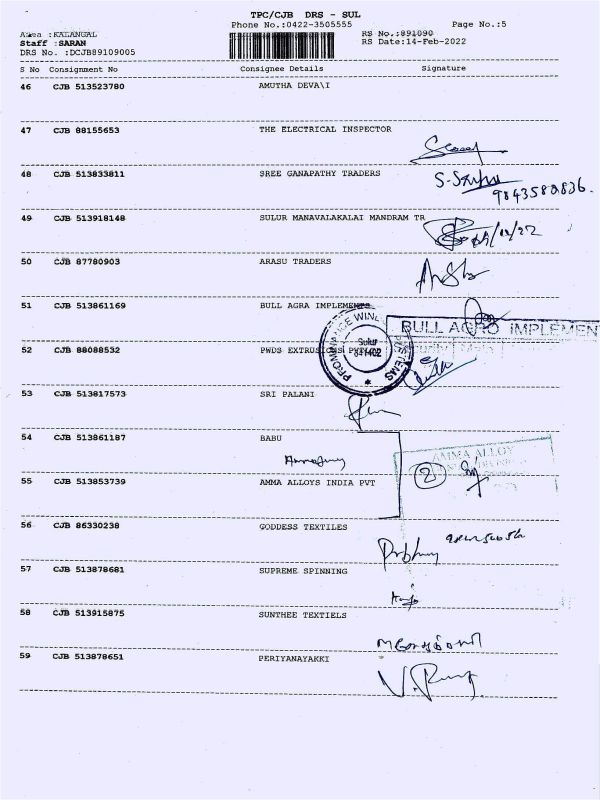 TPC/CJB DRS - SUL
Phone No.:0422-3505555
Page No.:5
Area :KALANGAL
RS No.:891090
Staff :SARAN
RS Date:14-Feb-2022
DRS No. :DCJB89109005
S No Consignment No Consignee Details Signature
46 CJB 513523780 AMUTHA DEVA\I
47 CJB 88155653 THE ELECTRICAL INSPECTOR
48 CJB 513833811 SREE GANAPATHY TRADERS
9843583836.
49 CJB 513918148 SULUR MANAVALAKALAI MANDRAM TR
50 CJB 87780903 ARASU TRADERS
51 CJB 513861169 BULL AGRA IMPLEMENTS
BULL AGRO IMPLEMEN
Sulur
641402
52 CJB 88088532 PWDS EXTRUSIONS
53 CJB 513817573 SRI PALANI
54 CJB 513861187 BABU
AMMA ALLOY
2
55 CJB 513853739 AMMA ALLOYS INDIA PVT
56 CJB 86330238 GODDESS TEXTILES
57 CJB 513878681 SUPREME SPINNING
58 CJB 513915875 SUNTHEE TEXTIELS
59 CJB 513878651 PERIYANAYAKKI